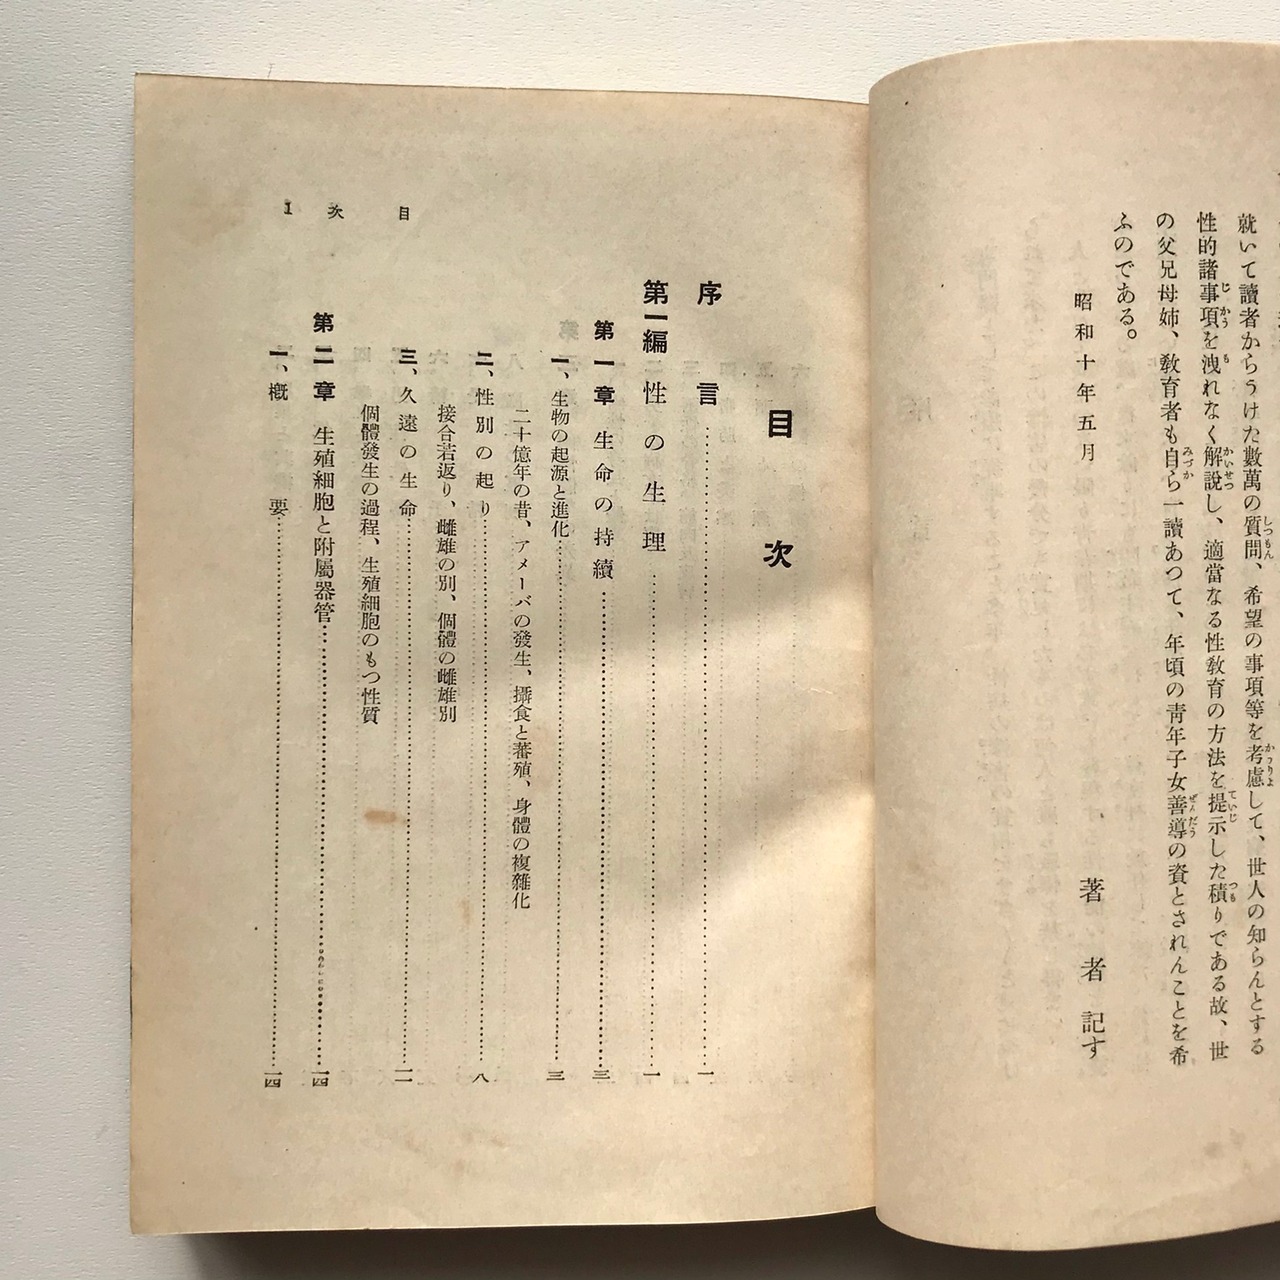 就いて讀者からうけた數萬の質問、希望の事項等を考慮して、世人の知らんとする
性的諸事項を洩れなく解說し、適當なる性敎育の方法を提示した積りである故、世
の父兄母姉、敎育者も自ら一讀あつて、年頃の靑年子女善導の資とされんことを希
ふのである。
昭和十年五月
著者記す
目次
序言……一
第一編 性の生理……一
第一章 生命の持續……三
一、生物の起源と進化……三
二十億年の昔、アメーバの發生、攝食と蕃殖、身體の複雜化
二、性別の起り……八
接合若返り、雌雄の別、個體の雌雄別
三、久遠の生命……一一
個體發生の過程、生殖細胞のもつ性質
第二章 生殖細胞と附屬器管……一四
一、槪要……一四
目次 1